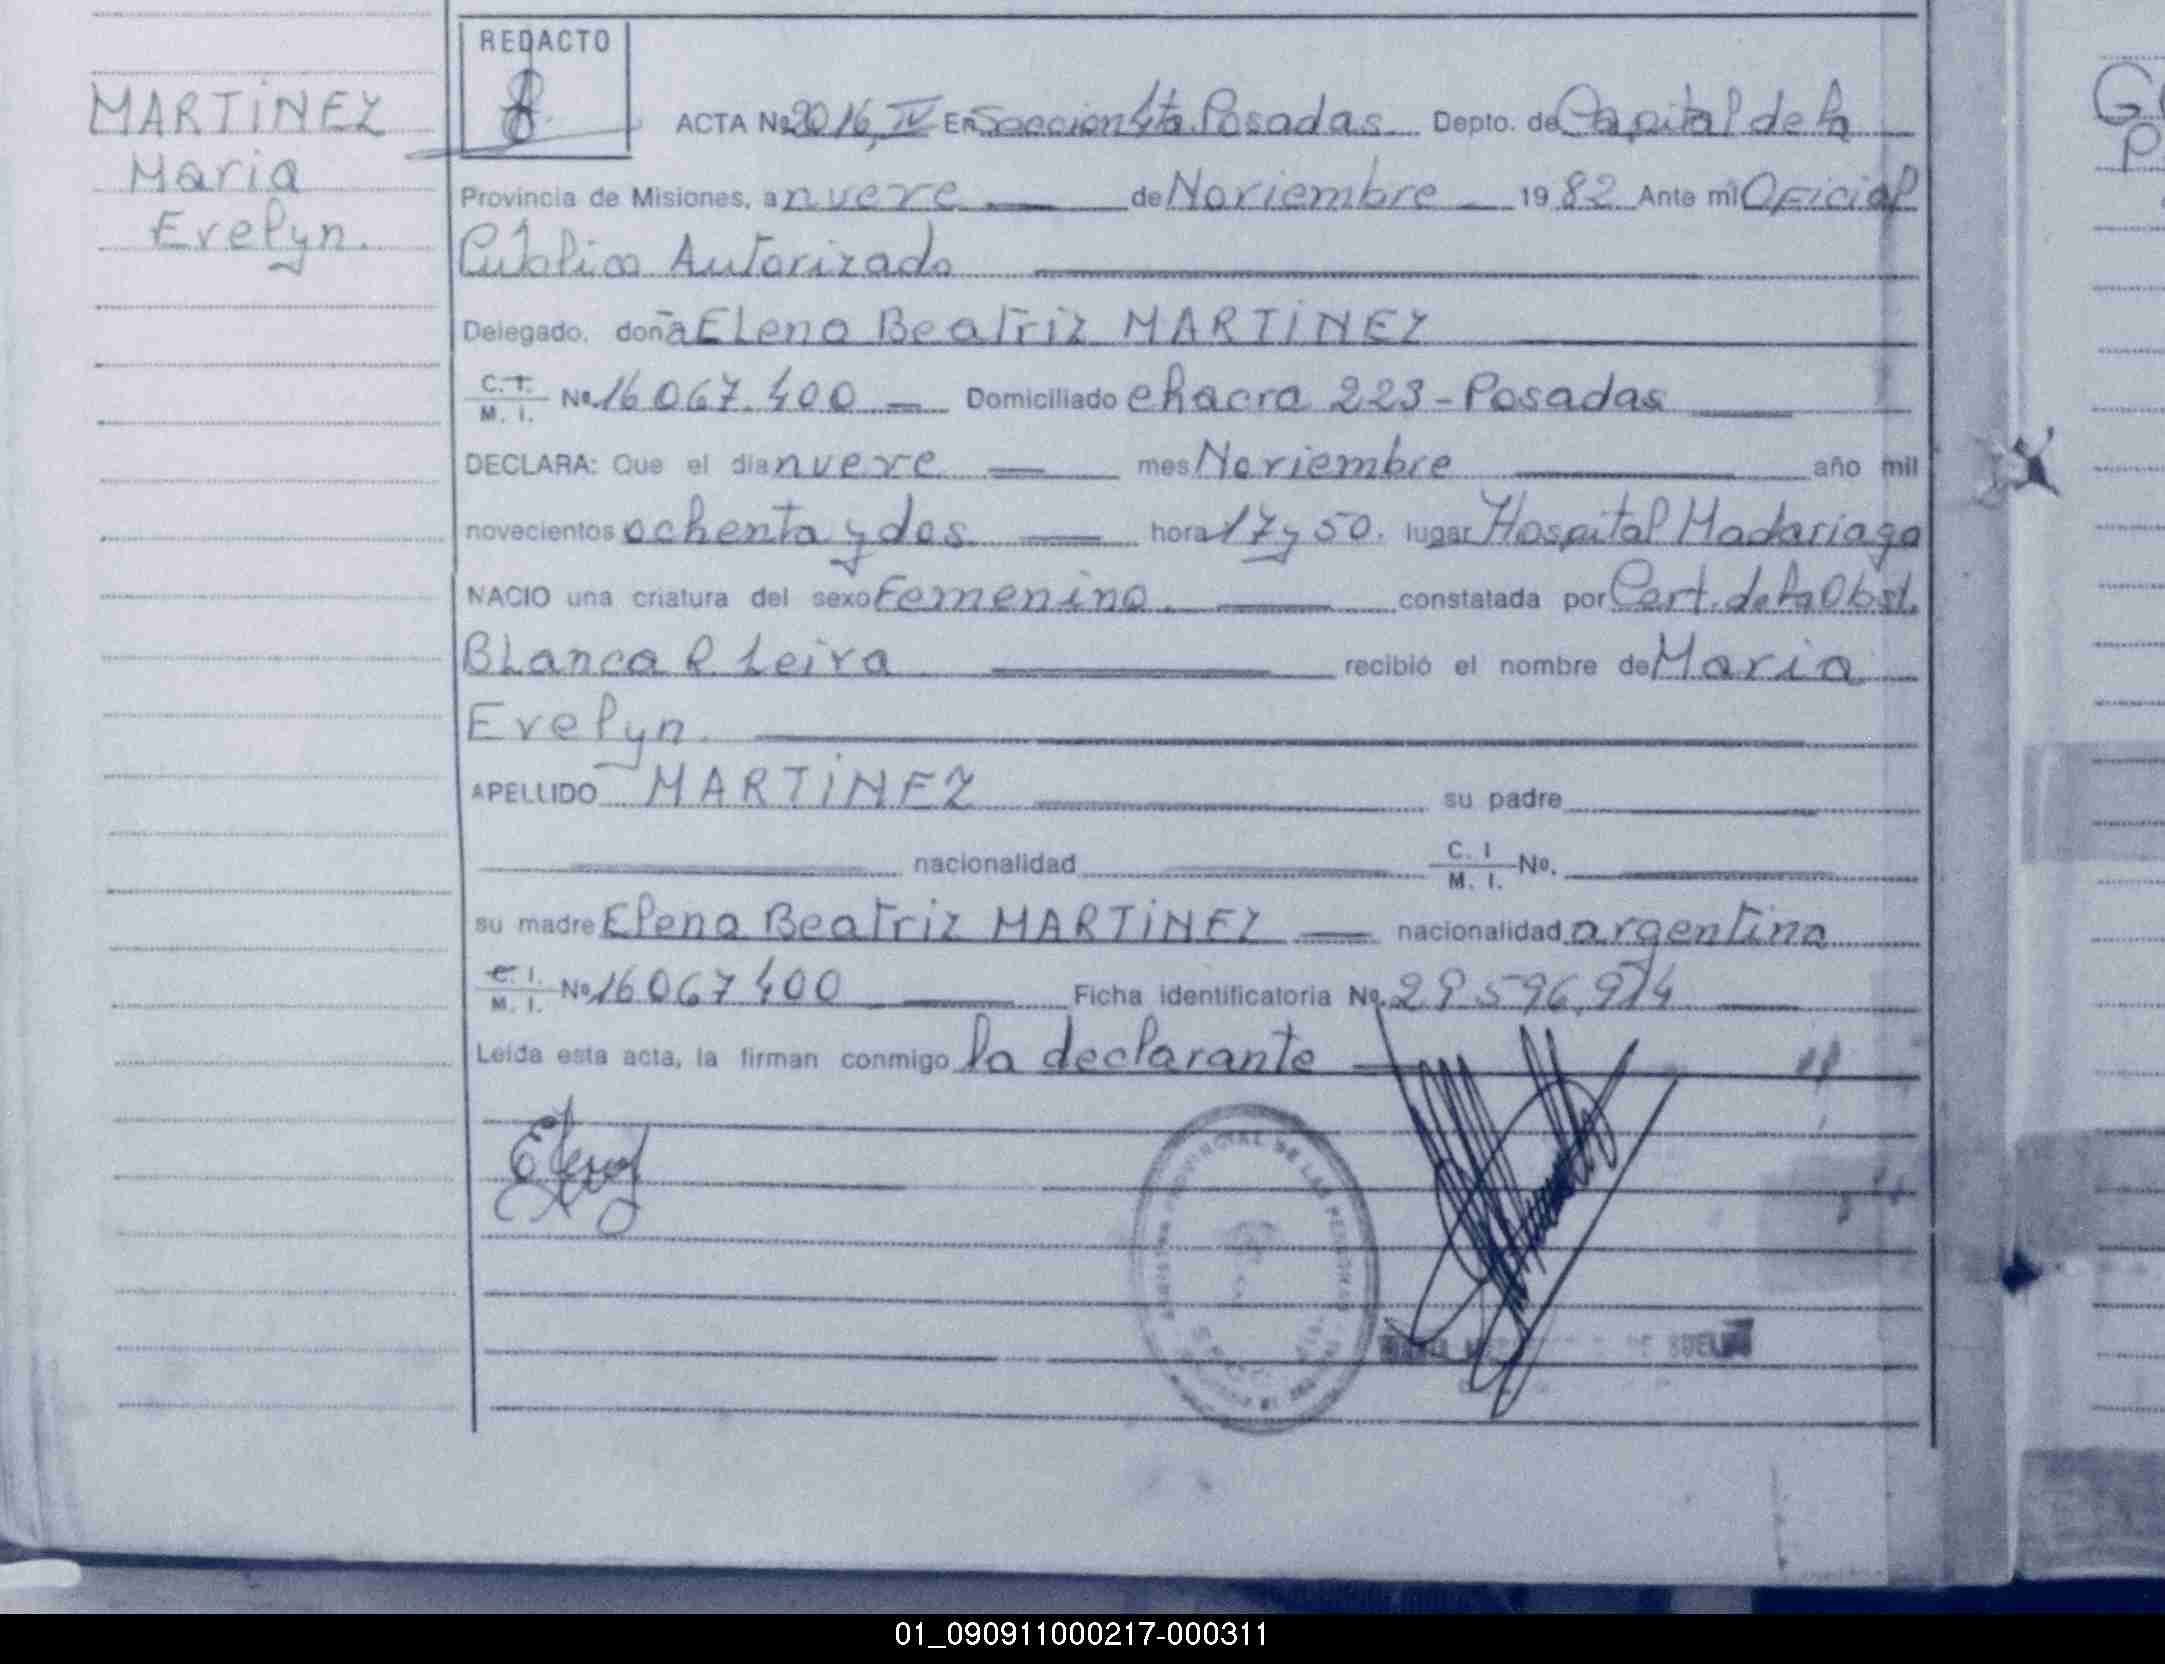 MARTINEZ
Maria
Evelyn.
REDACTO
ACTA Nº 2016, IV En Seccion 4ta. Posadas Depto. de Capital de la
Provincia de Misiones, a nueve de Noviembre 19 82 Ante mi Oficial
Publico Autorizado
Delegado, doña Elena Beatriz MARTINEZ
C. I.
M. I. Nº 16067.400 Domiciliado chacra 223 - Posadas
DECLARA: Que el dia nueve mes Noviembre año mil
novecientos ochenta y dos hora 17 y 50. lugar Hospital Madariaga
NACIO una criatura del sexo Femenino constatada por Cert. de la Obst.
Blanca R Leiva recibió el nombre de Maria
Evelyn.
APELLIDO MARTINEZ su padre
nacionalidad C. I
M. I. Nº.
su madre Elena Beatriz MARTINEZ nacionalidad argentina
C. I.
M. I. Nº 16067400 Ficha identificatoria Nº. 29.596.974
Leida esta acta, la firman conmigo la declarante
Elena
PROVINCIAL DE LAS PERSONAS
DE
G
P
01_090911000217-000311